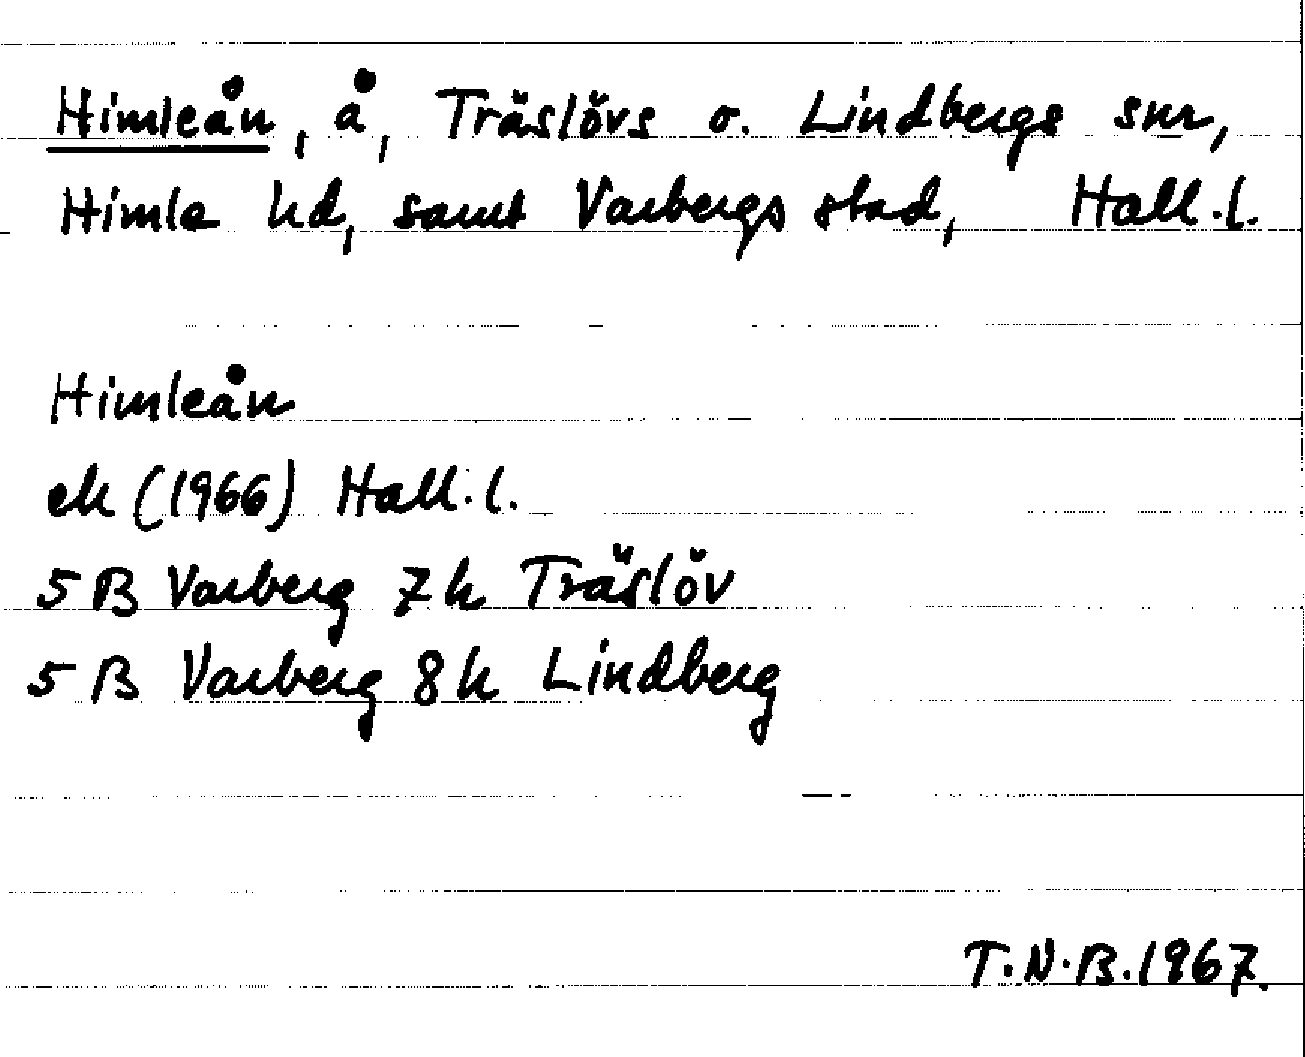 Himleån, å, Träslövs o. Lindbergs snr,
Himle hd, samt Varbergs stad, Hall.l.
Himleån
ek (1966) Hall.l.
5B Varberg 7h Träslöv
5B Varberg 8h Lindberg
T.N.B.1967.